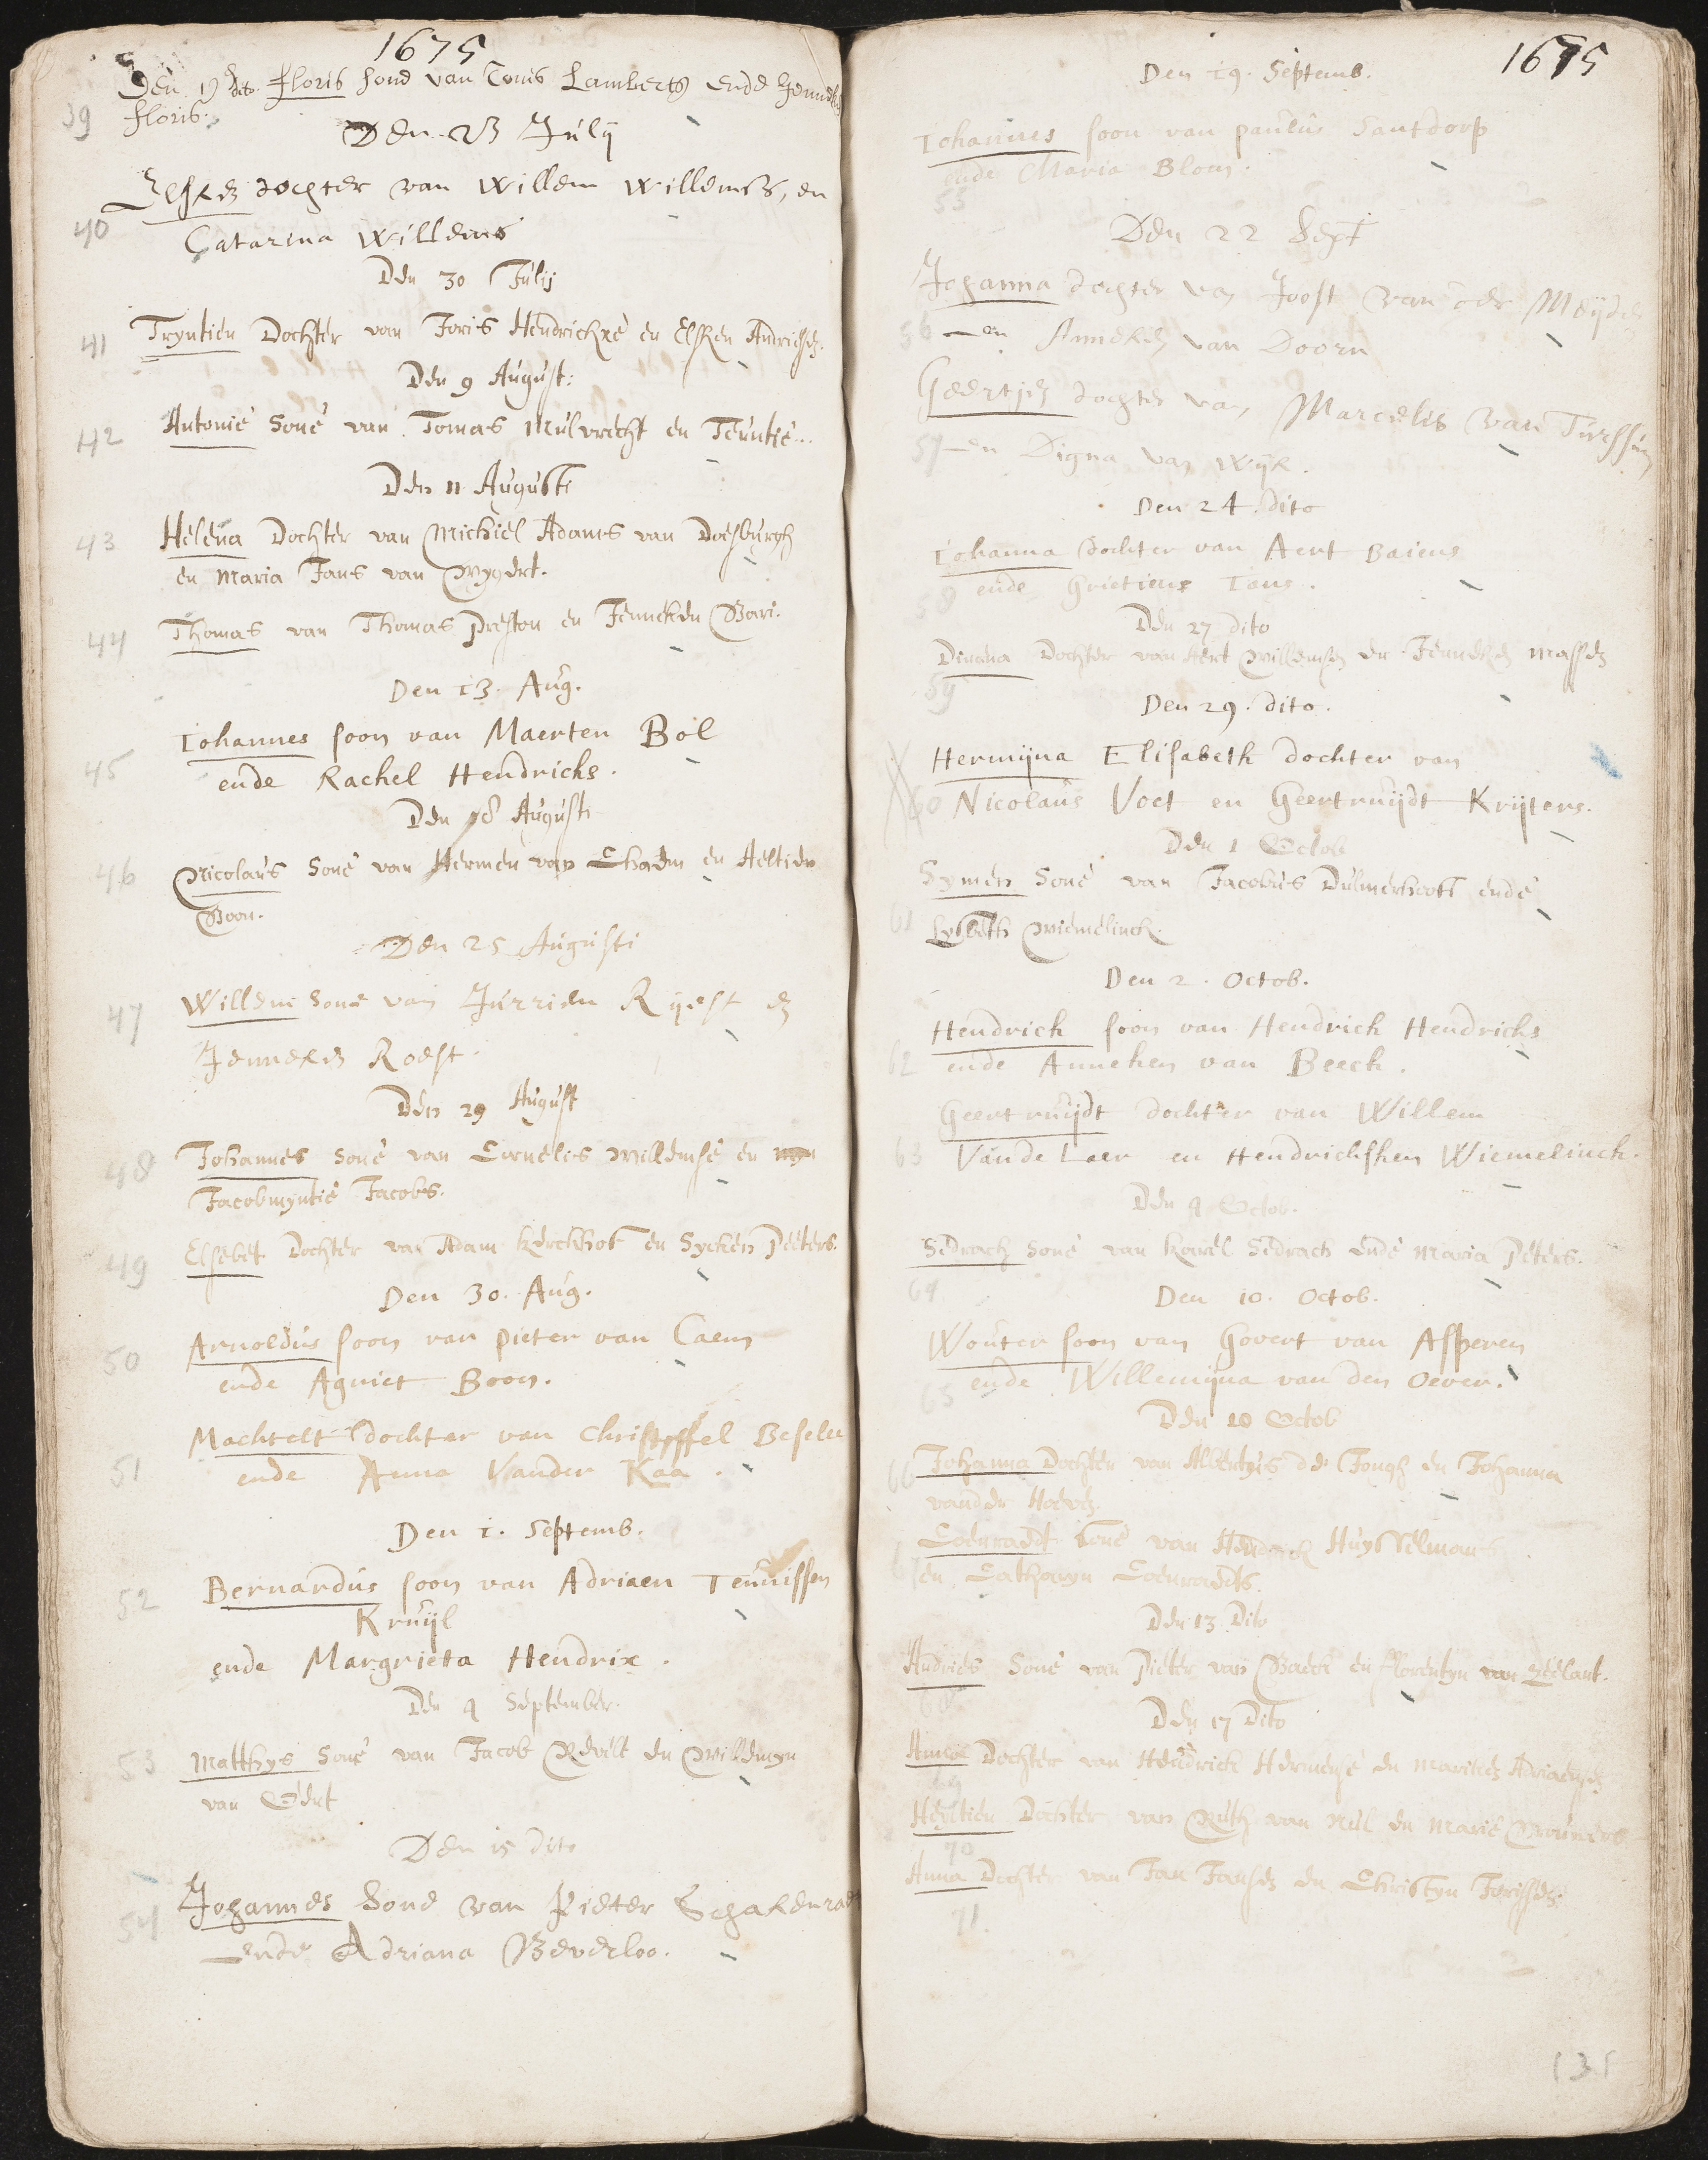 1675
Den 19 dito. Floris sone van Tonis Lamberts ende Jenneken
39 Floris.
Den 23 Julij
Elsken dochter van Willem Willemss, en
40 Catarina Willems
Den 30 Julij
41 Tryntien Dochter van Joris Hendrickxe en Elsken Andriessen.
Den 9 August:
42 Antonie Sone van Tomas Mulvrecht en Teuntie...
Den 11 Augusti
43 Helena Dochter van Michiel Adams van Doesburgh
en Maria Jans van Wygert.
44 Thomas van Thomas Preston en Jenneken Bari.
Den 13. Aug.
Iohannes soon van Maerten Bol
45 ende Rachel Hendrichs.
Den 18 Augusti
46 Nicolaus Sone van Hermen van Eham en Aeltien
Boon.
Den 25 Augusti
47 Willem Sone van Jurrien Ryest en
Jenneken Roest.
Den 29 August
48 Johannes Sone van Cornelis Willemse en
Jacobmyntie Jacobs.
49 Elsebet Dochter van Adam Kerckhof en Sycken Peeters.
Den 30. Aug.
50 Arnoldus soon van Pieter van Caem
ende Agniet Boon.
Machtelt dochter van Christoffel Beselu
51 ende Anna Vander Kaa.
Den 1. Septemb.
52 Bernardus soon van Adriaen Teunissen
Kruijl
ende Margrieta Hendrix.
Den 9 September.
53 Matthys Sone van Jacob Revelt en Willemyn
van Oert
Den 15 dito
54 Johannes Sone van Pieter Schakenraet
ende Adriana Beverloo.
1675
Den 19. Septemb.
Iohannes soon van Paulus Santdorp
ende Maria Blom.
55
Den 22 Sept
Johanna dochter van Joost van der Meijden
56 en Anneken van Doorn
Geertjen dochter van Marcelis van Turssen
57 en Digna van Wijk.
Den 24. dito
Iohanna dochter van Aert Baiens
58 ende Grietiens Ians.
Den 27 dito
Divera Dochter van Aert Willemsen en Jenneken Massen
59
Den 29. dito.
Hermijna Elisabeth dochter van
60 Nicolaus Voet en Geertruijdt Krijters.
Den 1 Octob
Symen Sone van Jacobus Dulmerhorst ende
61 Lysbeth Wiemelinck.
Den 2. Octob.
Hendrick soon van Hendrick Hendrichs
62 ende Anneken van Beeck.
Geertruijdt dochter van Willem
63 Vande Laer en Hendrichsken Wiemelinck.
Den 9 Octob.
Sedrach Sone van Karel Sedrach ende Maria Peters.
64
Den 10. Octob.
Wouter soon van Govert van Asperen
65 ende Willemijna van den Oever.
Den 10 Octob
66 Johanna Dochter van Albertus de Jongh en Johanna
vander Hoeven.
Coenraedt Sone van Hendrick Huysselmans
en Catharyn Coenraedts.
Den 13 Dito
Andries Sone van Pieter van Baeck en Florentyn van Zeelant.
68
Den 17 Dito
Anna Dochter van Hendrick Hermense en Maritien Adriaensen
69
Heyltien Dochter van Ruth van Nul en Marie Brouwers
70
Anna Dochter van Jan Jansen en Christyn Jorissen.
71.
131